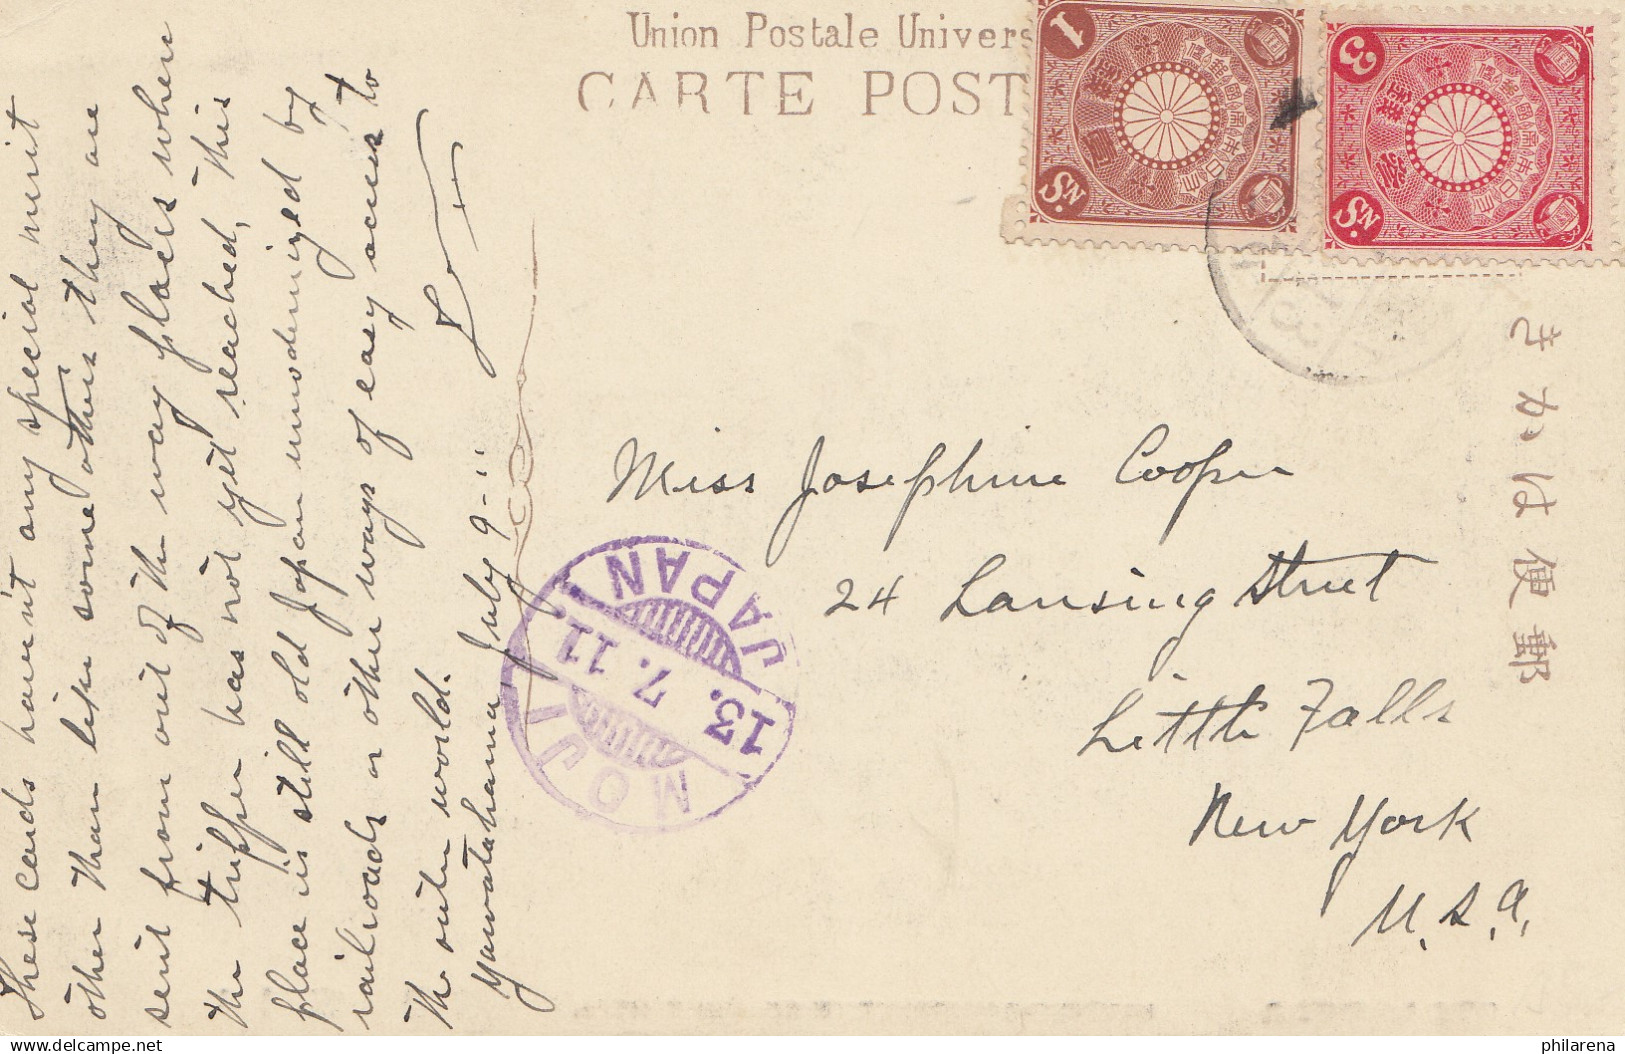 Union Postale Univers
CARTE POST
These cards haven't any special merit
other than like some others they are
sent from out of the way places where
the tripper has not yet reached, this
place is still old Japan unmodernized by
railroads or other ways of easy access to
the outer world.
Yawatahama July 9-11
Miss Josephine Cooper
24 Lansing Street
Little Falls
New York
U.S.A.
MOJI
13. 7. 11.
JAPAN
1 Sn.
3 Sn.
きかは便郵
philarena